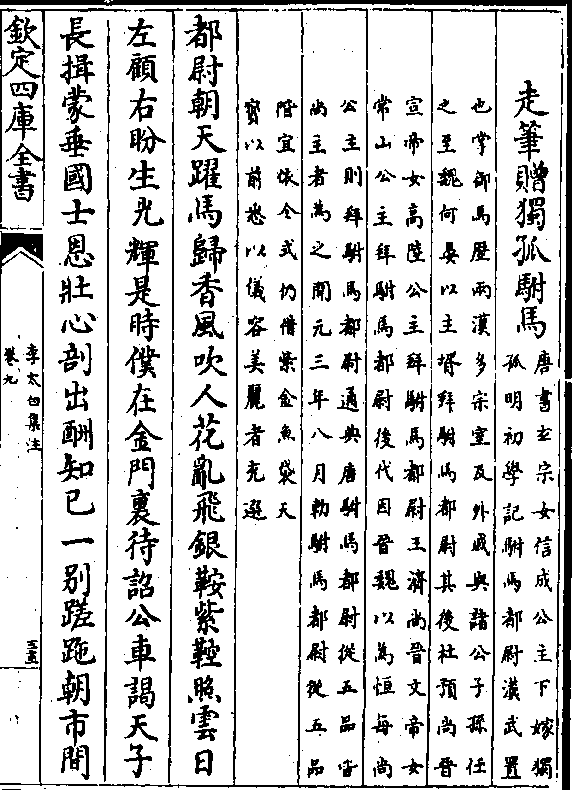 走筆贈獨孤駙馬
唐書玄宗女信成公主下嫁獨
孤明初學記駙馬都尉漢武置
也掌御馬歷兩漢多宗室及外戚與諸公子孫任
之至魏何晏以主壻拜駙馬都尉其後杜預尚晉
宣帝女高陸公主拜駙馬都尉王濟尚晉文帝女
常山公主拜駙馬都尉後代因晉魏以為恒每尚
公主則拜駙馬都尉通典唐駙馬都尉從五品皆
尚主者為之開元三年八月勅駙馬都尉從五品
階宜依令式仍借紫金魚袋天
寶以前悉以儀容美麗者充選
都尉朝天躍馬歸香風吹人花亂飛銀鞍紫鞚照雲日
左顧右盼生光輝是時僕在金門裏待詔公車謁天子
長揖蒙垂國士恩壯心剖出酬知己一别蹉跎朝市間
欽定四庫全書
李太白集注
卷九